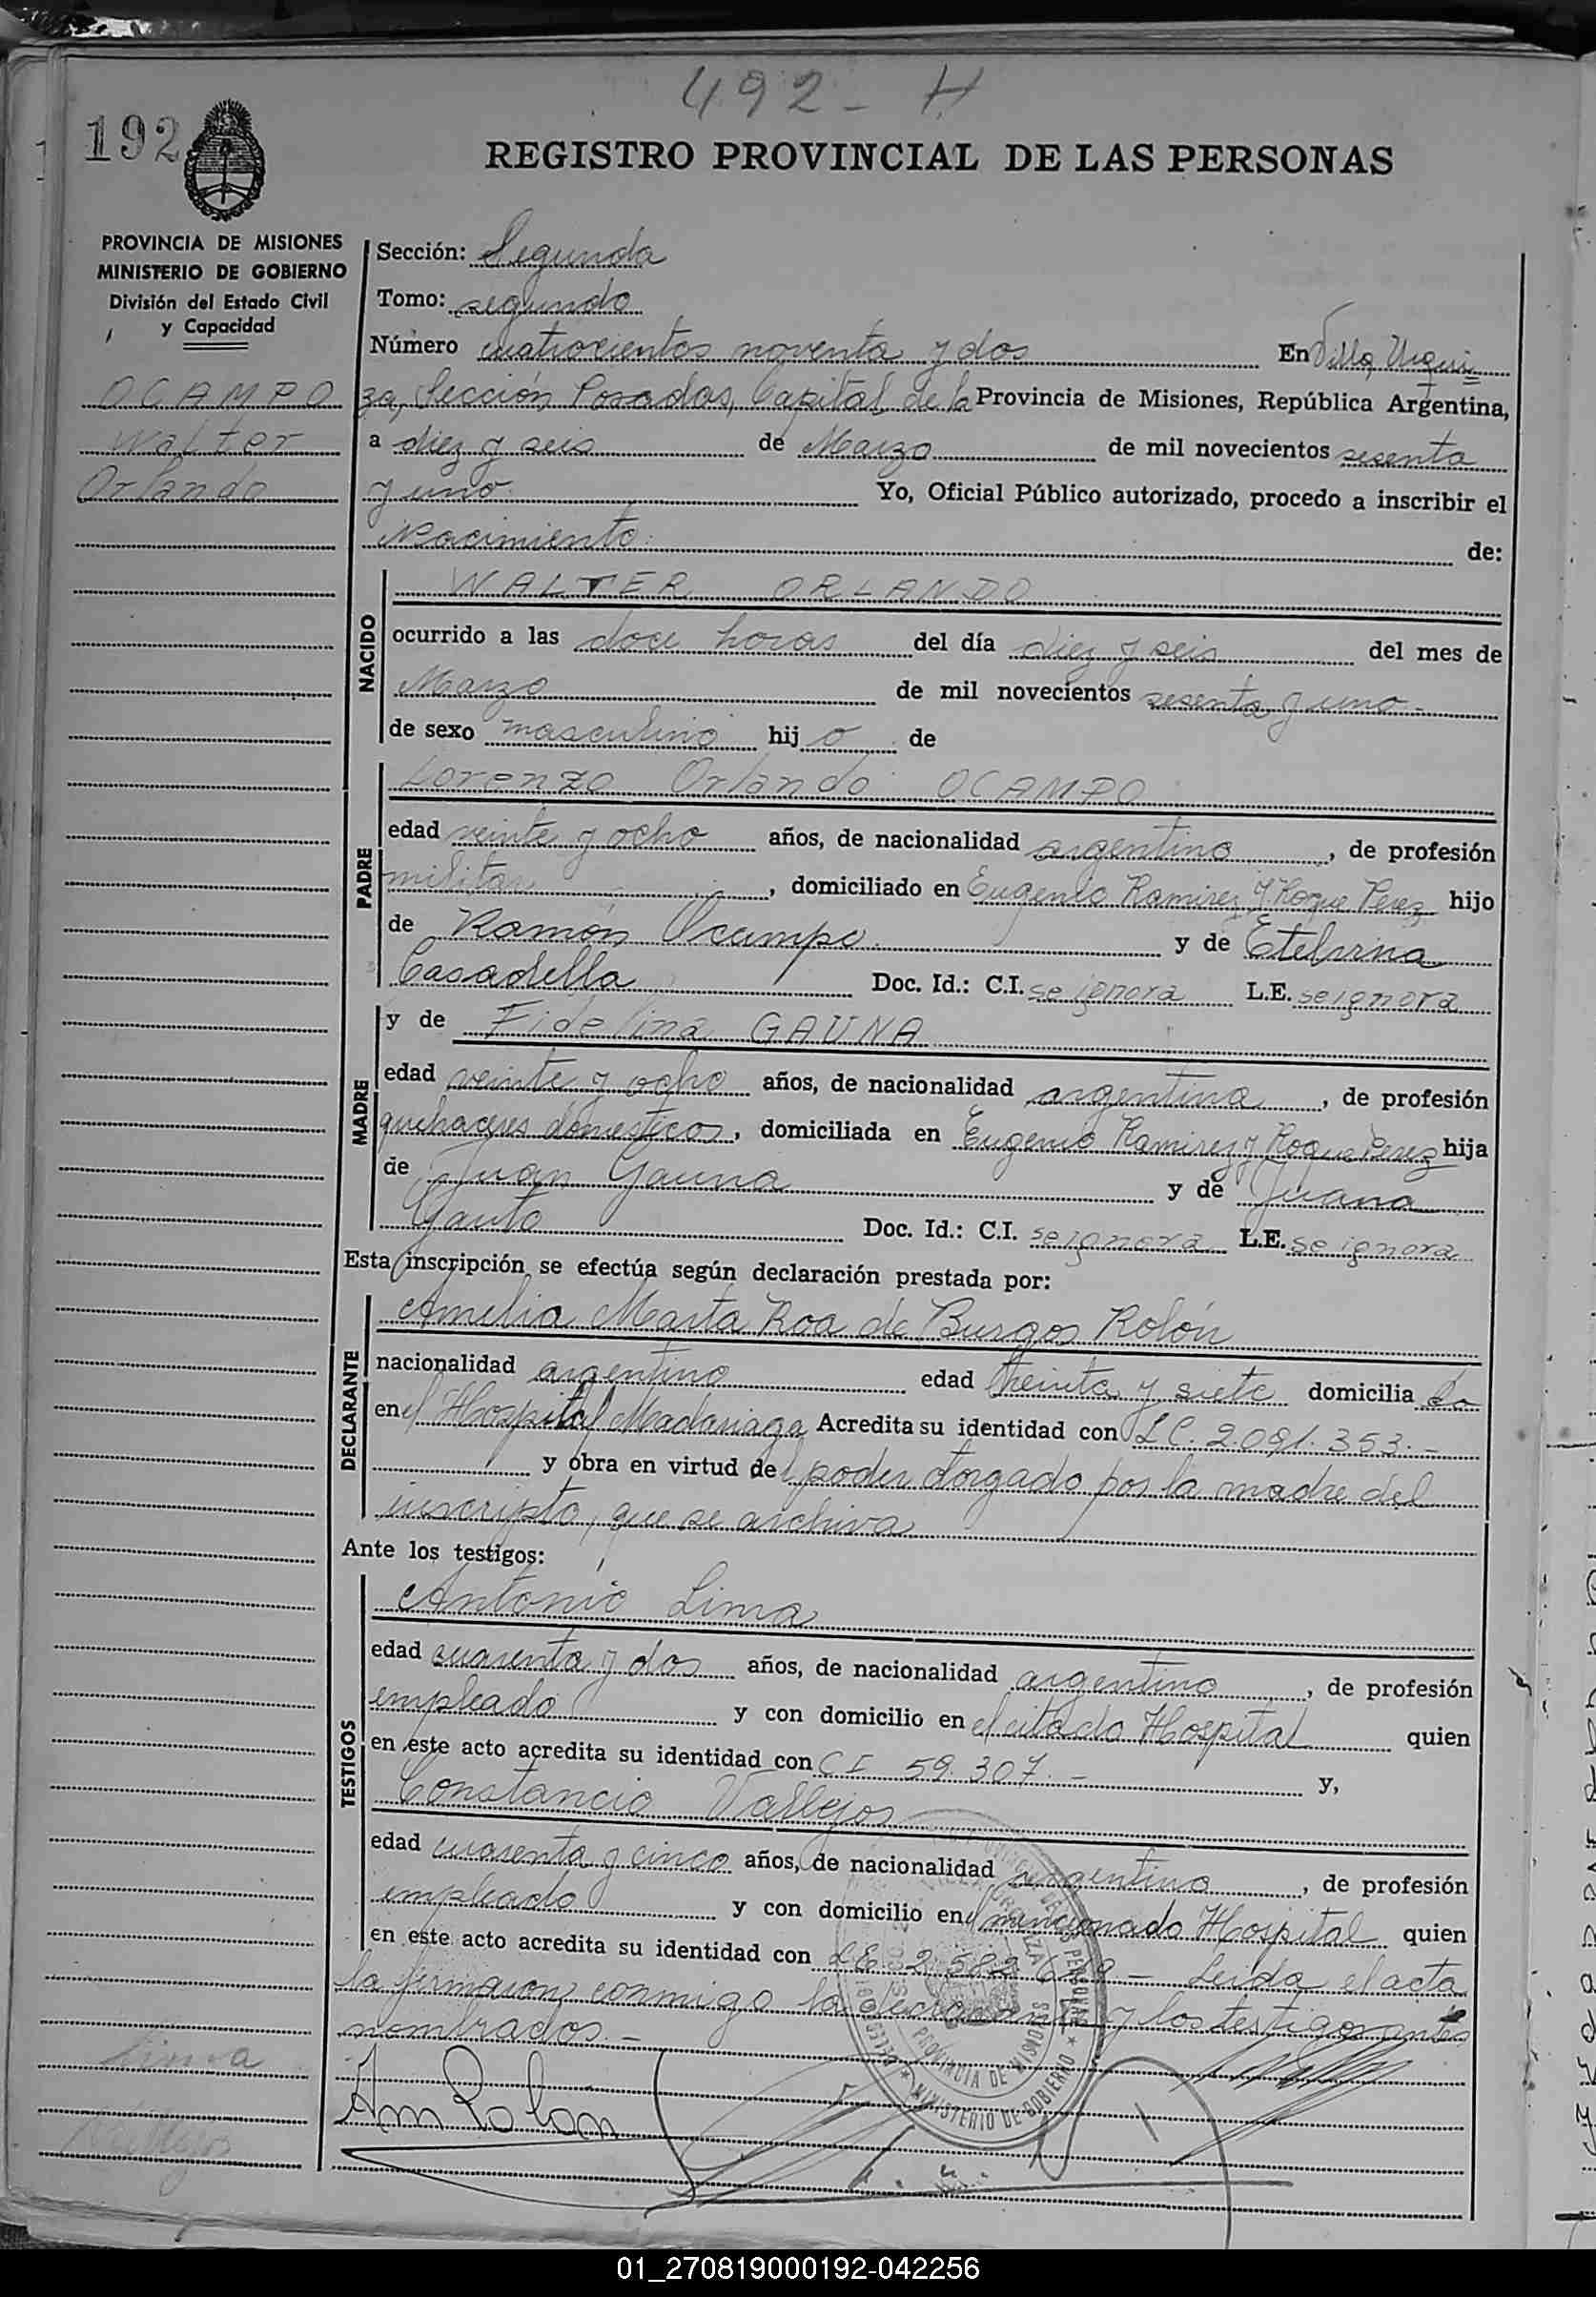 492 - H
192
REGISTRO PROVINCIAL DE LAS PERSONAS
PROVINCIA DE MISIONES
MINISTERIO DE GOBIERNO
División del Estado Civil
y Capacidad
OCAMPO
Walter
Orlando
Sección: Segunda
Tomo: segundo
Número cuatrocientos noventa y dos En Villa Urqui
za, Sección Posadas, Capital de la Provincia de Misiones, República Argentina,
a diez y seis de Marzo de mil novecientos sesenta
y uno Yo, Oficial Público autorizado, procedo a inscribir el
Nacimiento de:
NACIDO
WALTER ORLANDO
ocurrido a las doce horas del día diez y seis del mes de
Marzo de mil novecientos sesenta y uno -
de sexo masculino hij o de
PADRE
Lorenzo Orlando OCAMPO
edad veinte y ocho años, de nacionalidad argentino, de profesión
militar, domiciliado en Eugenio Ramirez y Roque Perez hijo
de Ramón Ocampo y de Etelvina
Casadella Doc. Id.: C.I. se ignora L.E. se ignora
MADRE
y de Fidelina GAUNA
edad veinte y ocho años, de nacionalidad argentina, de profesión
quehaceres domesticos, domiciliada en Eugenio Ramirez y Roque Perez hija
de Juan Gauna y de Juana
Gauto Doc. Id.: C.I. se ignora L.E. se ignora
Esta inscripción se efectúa según declaración prestada por:
DECLARANTE
Amelia Marta Roa de Burgos Rolón
nacionalidad argentino edad treinta y siete domicilia do
en el Hospital Madariaga Acredita su identidad con LC. 2.091.353. -
y obra en virtud del poder otorgado por la madre del
inscripto, que se archiva
Ante los testigos:
TESTIGOS
Antonio Lima
edad cuarenta y dos años, de nacionalidad argentino, de profesión
empleado y con domicilio en el citado Hospital quien
en este acto acredita su identidad con CI 59.307. - y,
Constancio Vallejos
edad cuarenta y cinco años, de nacionalidad argentino, de profesión
empleado y con domicilio en el mencionado Hospital quien
en este acto acredita su identidad con LE 2.582. - Leida el acta
la firmaron conmigo la declarante y los testigos antes
nombrados. -
Lima
Vallejos
Am Rolon
PROVINCIA DE MISIONES
MINISTERIO DE GOBIERNO
01_270819000192-042256